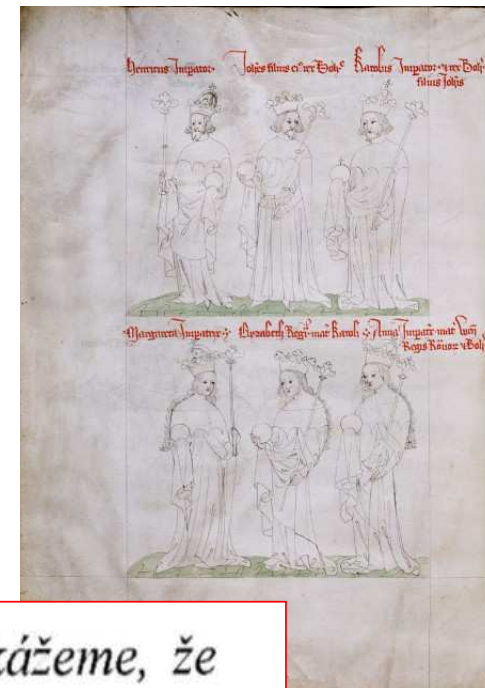 Henricus Imperator
Johes filius ei rex Boh
Karolus Imperator rex Boh
filius Johis
Margareta Imperatrix
Elyzabeth Regina mat Karoli
Anna Imperat mat
Regis Boh
kážeme, že